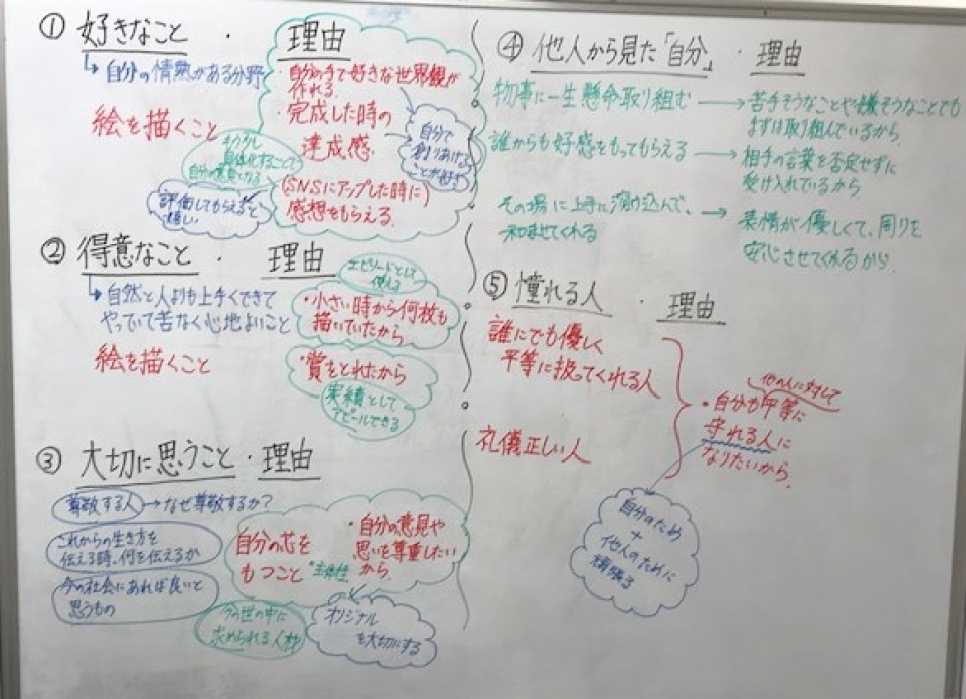 ① 好きなこと ・ 理由
↳ 自分の情熱がある分野
絵を描くこと
・自分の手で好きな世界観が
作れる。
・完成した時の
達成感
自分で
創りあげる
ことが好き
具体化することで
自分の意見となる
(SNSにアップした時に)
感想をもらえる。
評価してもらえると
嬉しい
② 得意なこと ・ 理由
↳ 自然と人よりも上手くできて
やっていて苦なく心地よいこと
絵を描くこと
エピソードとして
使える
・小さい時から何枚も
描いていたから
・賞をとれたから
実績として
アピールできる
③ 大切に思うこと ・ 理由
尊敬する人 → なぜ尊敬するか?
これからの生き方を
伝える時、何を伝えるか
今の社会にあれば良いと
思うもの
自分の芯を
もつこと
・自分の意見や
思いを尊重したい
から。
主体性
今の世の中に
求められる人材
オリジナル
も大切にする
④ 他人から見た「自分」 ・ 理由
物事に一生懸命取り組む → 苦手そうなことや嫌そうなことでも
まずは取り組んでいるから
誰からも好感をもってもらえる → 相手の言葉を否定せずに
受け入れているから
その場に上手に溶け込んで、 → 表情が優しくて、周りを
和ませてくれる
安心させてくれるから
⑤ 憧れる人 ・ 理由
誰にでも優しく
平等に扱ってくれる人
礼儀正しい人
他の人に対して
・自分も平等に
守れる人に
なりたいから。
自分のため
+
他人のために
頑張る